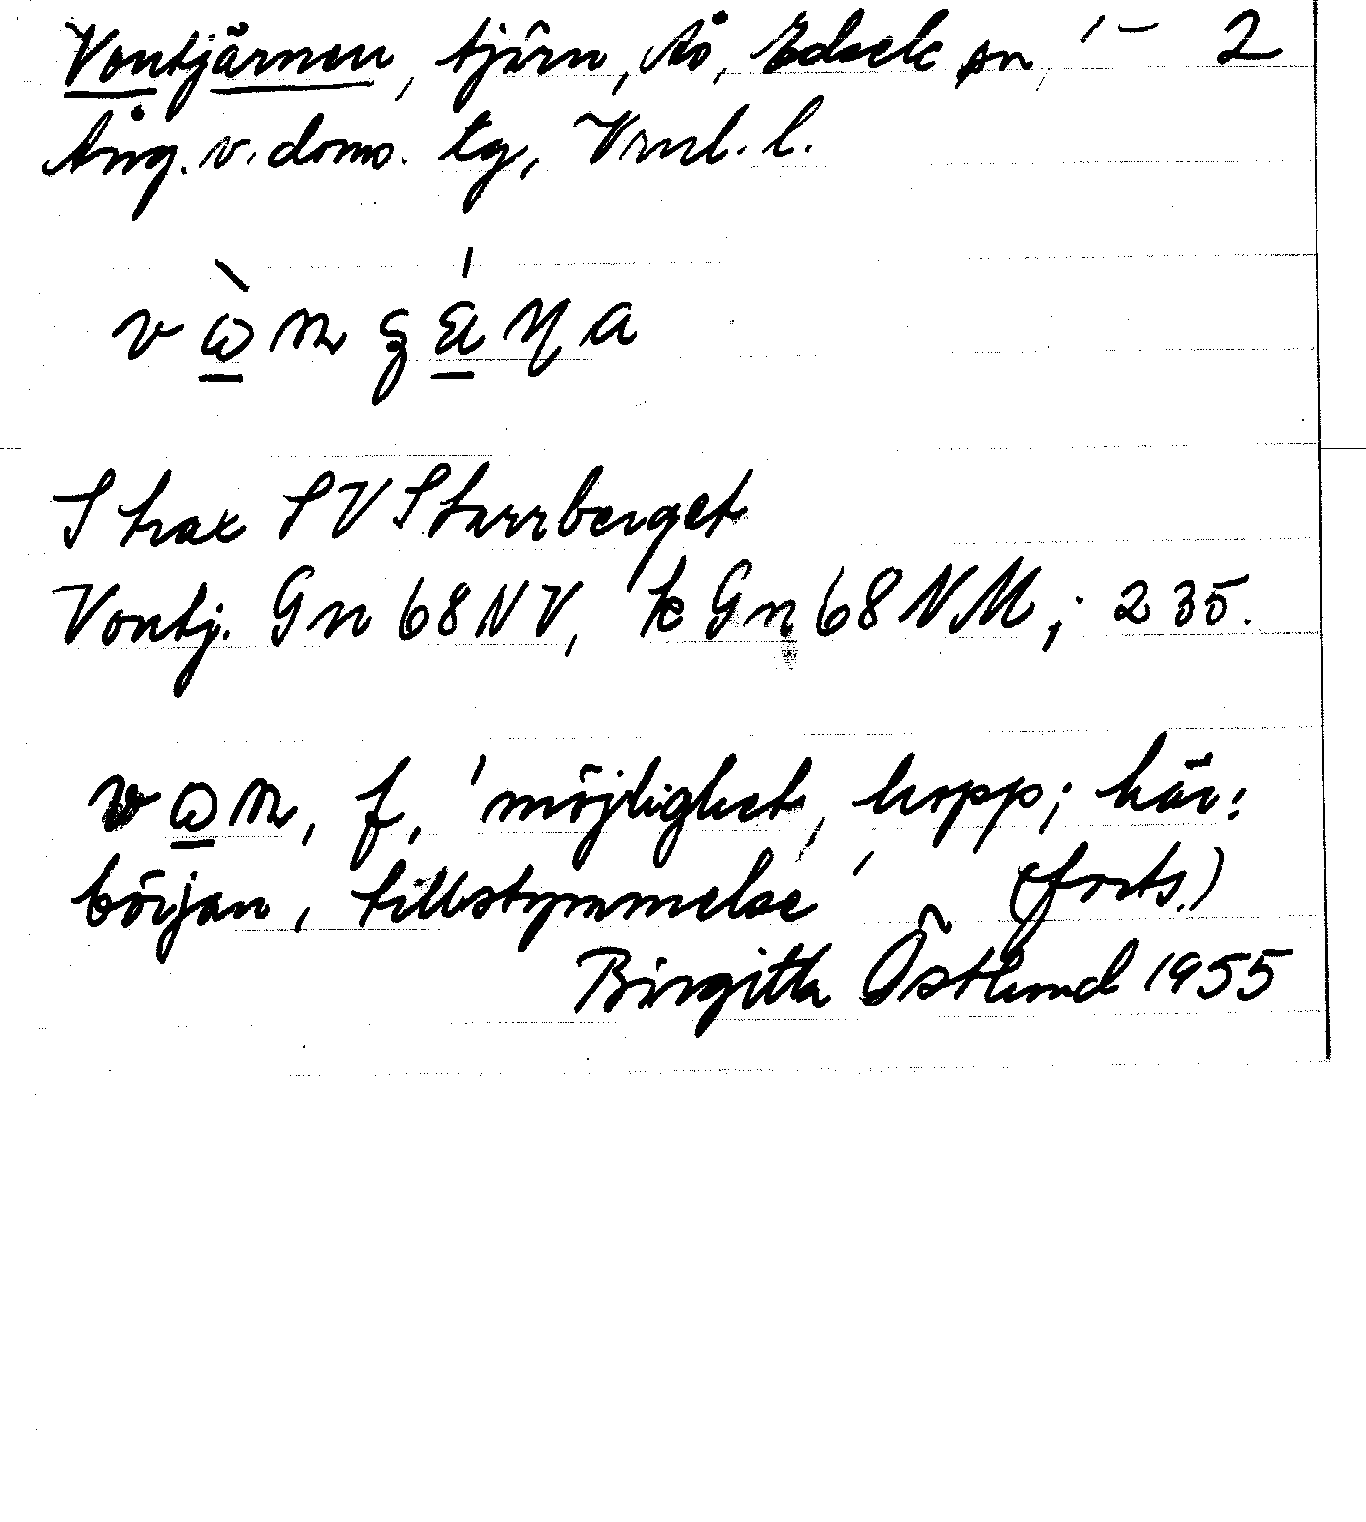 Vontjärnen, tjärn, Ås, Edsele sn, '– 2
Ång. v. doms. tg, Vrnl. l.
Strax SV Starrberget
Vontj. Gn 68 NV, k Gn 68 NM; 235.
f, 'möjlighet, hopp; här:
början, tillstymmelse' (forts.)
Birgitta Östlund 1955